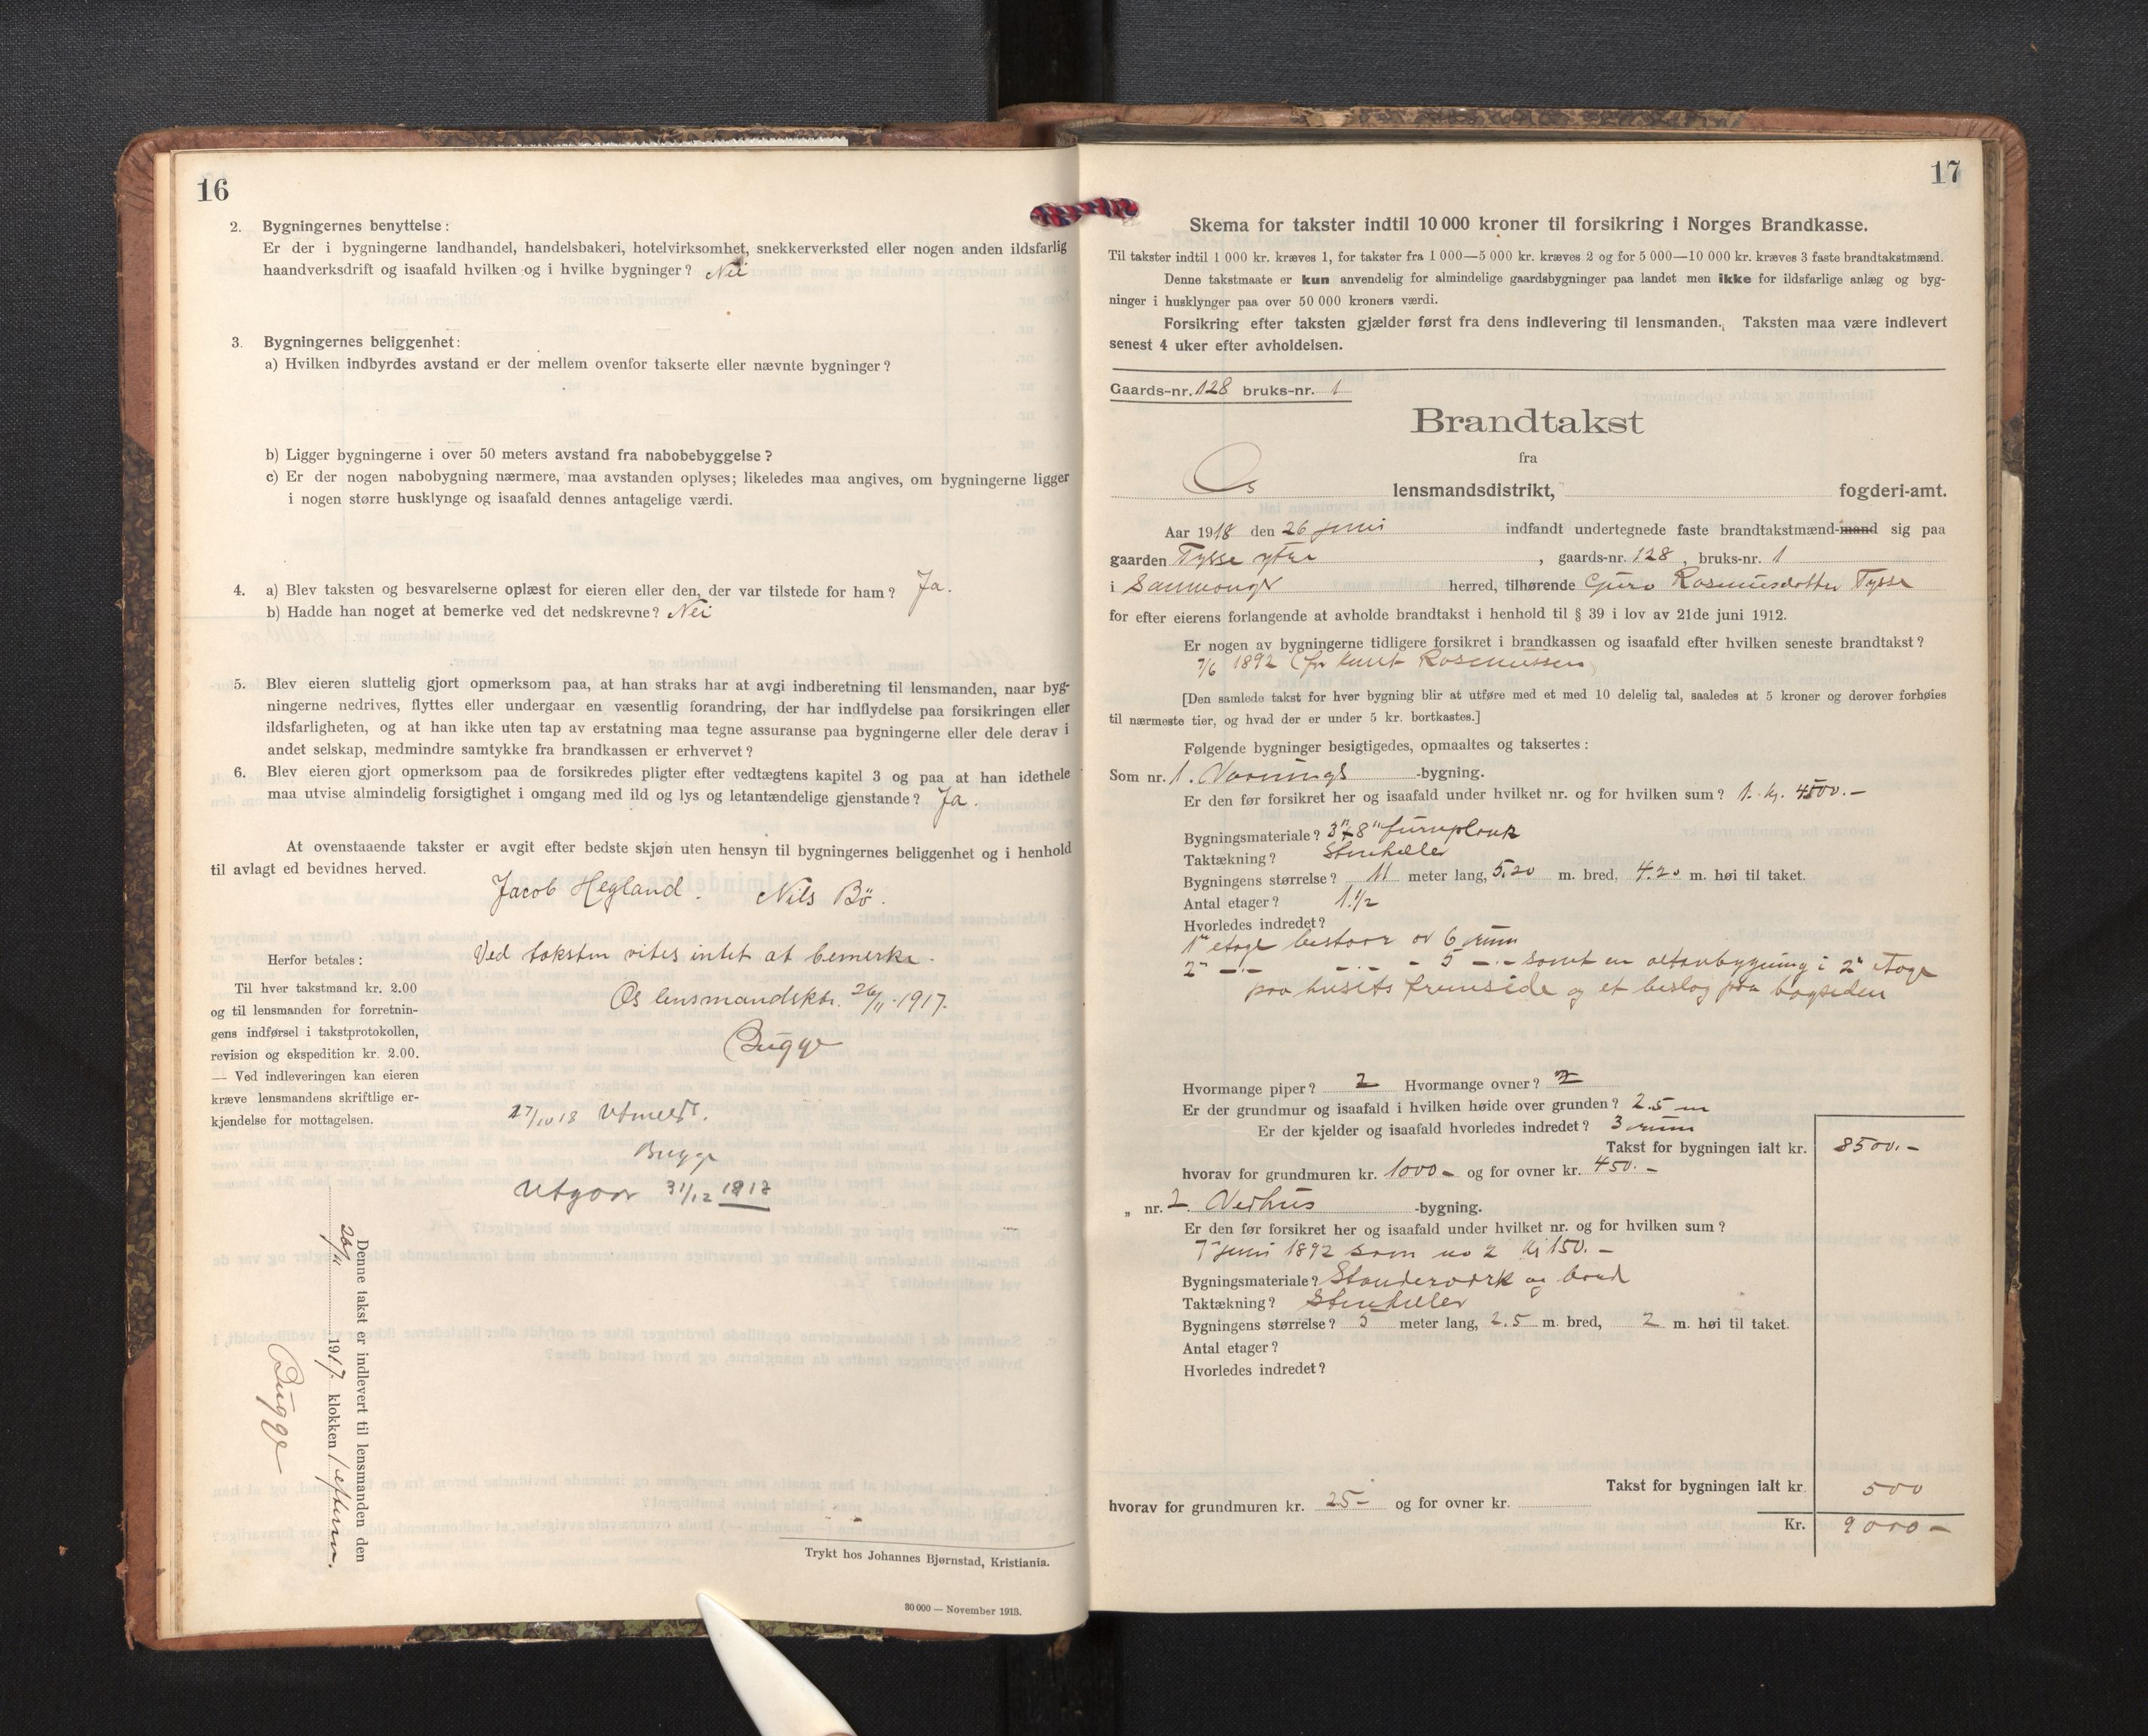 16
2. Bygningernes benyttelse:
Er der i bygningerne landhandel, handelsbakeri, hotelvirksomhet, snekkerverksted eller nogen anden ildsfarlig
haandverksdrift og isaafald hvilken og i hvilke bygninger? Nei
3. Bygningernes beliggenhet:
a) Hvilken indbyrdes avstand er der mellem ovenfor takserte eller nævnte bygninger?
b) Ligger bygningerne i over 50 meters avstand fra nabobebyggelse?
c) Er der nogen nabobygning nærmere, maa avstanden oplyses; likeledes maa angives, om bygningerne ligger
i nogen større husklynge og isaafald dennes antagelige værdi.
4. a) Blev taksten og besvarelserne oplæst for eieren eller den, der var tilstede for ham? Ja.
b) Hadde han noget at bemerke ved det nedskrevne? Nei
5. Blev eieren sluttelig gjort opmerksom paa, at han straks har at avgi indberetning til lensmanden, naar byg-
ningerne nedrives, flyttes eller undergaar en væsentlig forandring, der har indflydelse paa forsikringen eller
ildsfarligheten, og at han ikke uten tap av erstatning maa tegne assuranse paa bygningerne eller dele derav i
andet selskap, medmindre samtykke fra brandkassen er erhvervet?
6. Blev eieren gjort opmerksom paa de forsikredes pligter efter vedtægtens kapitel 3 og paa at han idethele
maa utvise almindelig forsigtighet i omgang med ild og lys og letantændelige gjenstande? Ja.
At ovenstaaende takster er avgit efter bedste skjøn uten hensyn til bygningernes beliggenhet og i henhold
til avlagt ed bevidnes herved.
Jacob Hegland. Nils Bö.
Ved taksten vites intet at bemerke.
Os lensmandsktr. 26/11 1917.
Bugge
Herfor betales:
Til hver takstmand kr. 2.00
og til lensmanden for forretnin-
gens indførsel i takstprotokollen,
revision og ekspedition kr. 2.00.
— Ved indleveringen kan eieren
kræve lensmandens skriftlige er-
kjendelse for mottagelsen.
27/10 18 Utmeldt.
Bugge
Utgaar 31/12 1918
Denne takst er indlevert til lensmanden den
26/11 1917. klokken 1 efterm.
Bugge
Trykt hos Johannes Bjørnstad, Kristiania.
30 000 — November 1913.
17
Skema for takster indtil 10 000 kroner til forsikring i Norges Brandkasse.
Til takster indtil 1 000 kr. kræves 1, for takster fra 1 000—5 000 kr. kræves 2 og for 5 000—10 000 kr. kræves 3 faste brandtakstmænd.
Denne takstmaate er kun anvendelig for almindelige gaardsbygninger paa landet men ikke for ildsfarlige anlæg og byg-
ninger i husklynger paa over 50 000 kroners værdi.
Forsikring efter taksten gjælder først fra dens indlevering til lensmanden. Taksten maa være indlevert
senest 4 uker efter avholdelsen.
Gaards-nr. 128 bruks-nr. 1
Brandtakst
fra
Os lensmandsdistrikt, fogderi-amt.
Aar 1918 den 26 juni indfandt undertegnede faste brandtakstmænd-mand sig paa
gaarden Tysse ytre, gaards-nr. 128, bruks-nr. 1
i Samnanger herred, tilhørende Guro Rasmusdotter Tysse
for efter eierens forlangende at avholde brandtakst i henhold til § 39 i lov av 21de juni 1912.
Er nogen av bygningerne tidligere forsikret i brandkassen og isaafald efter hvilken seneste brandtakst?
7/6 1892 (for Knut Rasmussen)
[Den samlede takst for hver bygning blir at utføre med et med 10 delelig tal, saaledes at 5 kroner og derover forhøies
til nærmeste tier, og hvad der er under 5 kr. bortkastes.]
Følgende bygninger besigtigedes, opmaaltes og taksertes:
Som nr. 1. Vaanings -bygning.
Er den før forsikret her og isaafald under hvilket nr. og for hvilken sum? 1. kr. 4500.—
Bygningsmateriale? 3"x8" furuplank
Taktækning? Stenheller
Bygningens størrelse? 11 meter lang, 5.20 m. bred, 4.20 m. høi til taket.
Antal etager? 1.1/2
Hvorledes indredet?
1ste etage bestaar av 6 rum
2" —.— —.— - 5 —.— samt en altanbygning i 2n etage
paa husets fremside og et beslag paa bagsiden
Hvormange piper? 2 Hvormange ovner? 7
Er der grundmur og isaafald i hvilken høide over grunden? 2.5 m
Er der kjelder og isaafald hvorledes indredet? 3 rum
Takst for bygningen ialt kr. 8500.—
hvorav for grundmuren kr. 1000— og for ovner kr. 450.—
„ nr. 2 Vedhus -bygning.
Er den før forsikret her og isaafald under hvilket nr. og for hvilken sum?
7 juni 1892 som no 2 kr 150.—
Bygningsmateriale? Standerværk og bord
Taktækning? Stenheller
Bygningens størrelse? 5 meter lang, 2.5 m. bred, 2 m. høi til taket.
Antal etager?
Hvorledes indredet?
Takst for bygningen ialt kr. 500
hvorav for grundmuren kr. 25— og for ovner kr.
Kr. 9000—